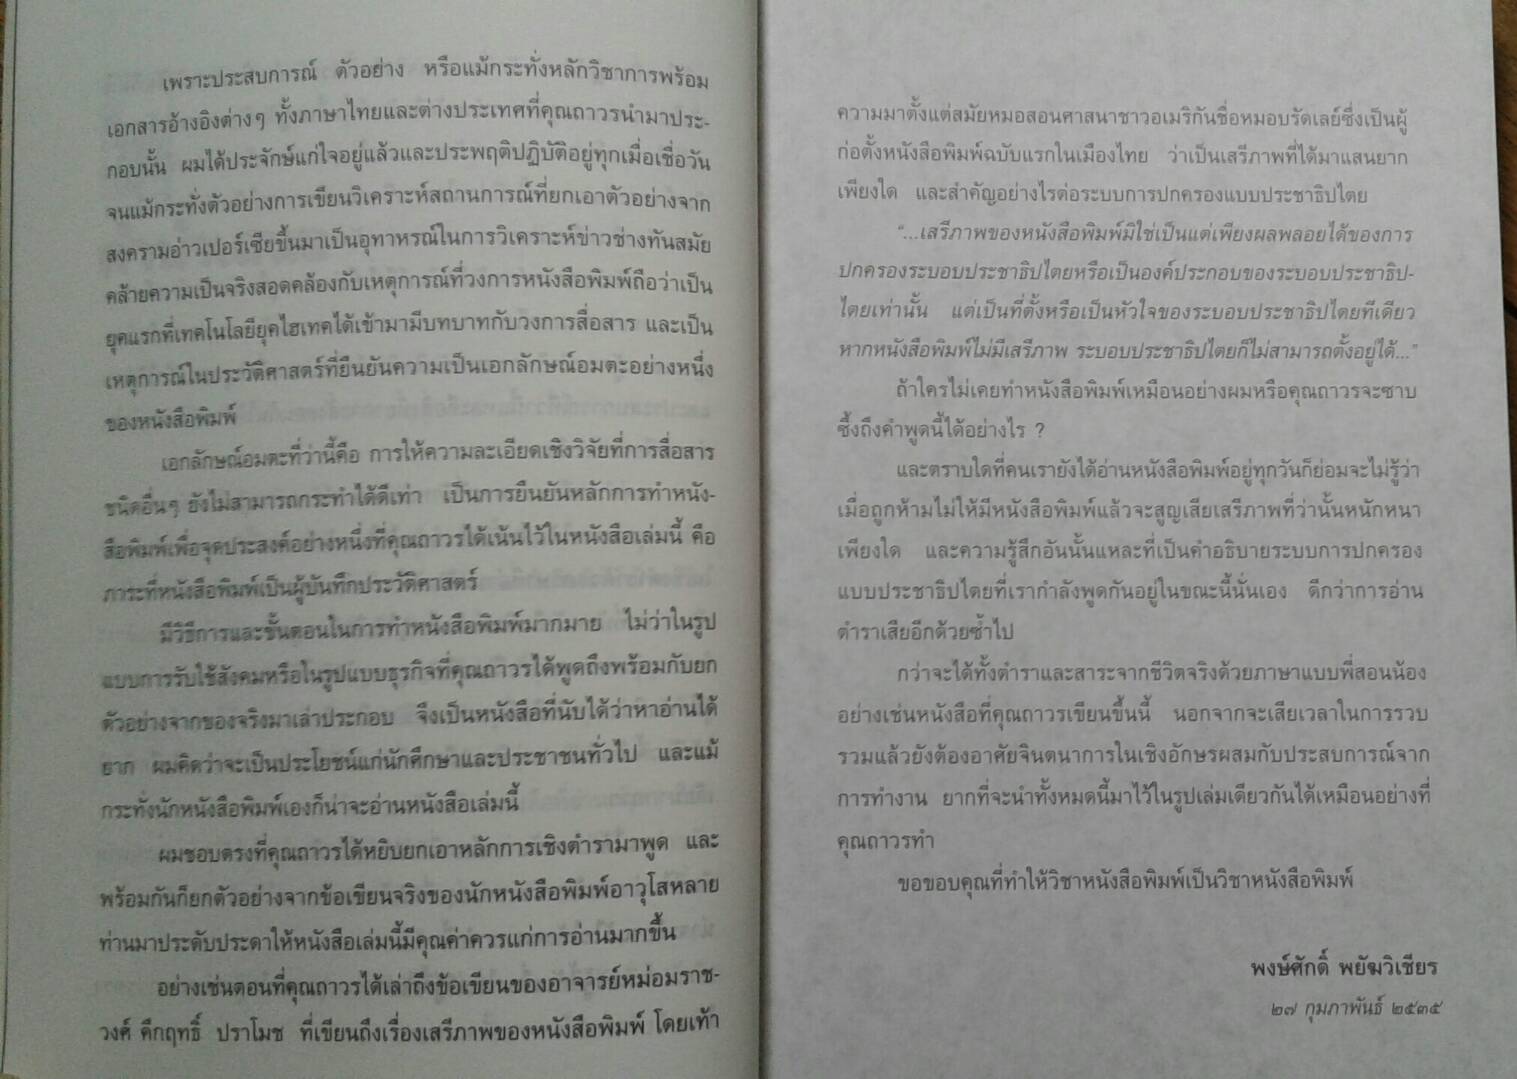 เพราะประสบการณ์ ตัวอย่าง หรือแม้กระทั่งหลักวิชาการพร้อม
เอกสารอ้างอิงต่างๆ ทั้งภาษาไทยและต่างประเทศที่คุณถาวรนำมาประ-
กอบนั้น ผมได้ประจักษ์แก่ใจอยู่แล้วและประพฤติปฏิบัติอยู่ทุกเมื่อเชื่อวัน
จนแม้กระทั่งตัวอย่างการเขียนวิเคราะห์สถานการณ์ที่ยกเอาตัวอย่างจาก
สงครามอ่าวเปอร์เซียขึ้นมาเป็นอุทาหรณ์ในการวิเคราะห์ข่าวช่างทันสมัย
คล้ายความเป็นจริงสอดคล้องกับเหตุการณ์ที่วงการหนังสือพิมพ์ถือว่าเป็น
ยุคแรกที่เทคโนโลยียุคไฮเทคได้เข้ามามีบทบาทกับวงการสื่อสาร และเป็น
เหตุการณ์ในประวัติศาสตร์ที่ยืนยันความเป็นเอกลักษณ์อมตะอย่างหนึ่ง
ของหนังสือพิมพ์
เอกลักษณ์อมตะที่ว่านี้คือ การให้ความละเอียดเชิงวิจัยที่การสื่อสาร
ชนิดอื่นๆ ยังไม่สามารถกระทำได้ดีเท่า เป็นการยืนยันหลักการทำหนัง-
สือพิมพ์เพื่อจุดประสงค์อย่างหนึ่งที่คุณถาวรได้เน้นไว้ในหนังสือเล่มนี้ คือ
ภาระที่หนังสือพิมพ์เป็นผู้บันทึกประวัติศาสตร์
มีวิธีการและขั้นตอนในการทำหนังสือพิมพ์มากมาย ไม่ว่าในรูป
แบบการรับใช้สังคมหรือในรูปแบบธุรกิจที่คุณถาวรได้พูดถึงพร้อมกับยก
ตัวอย่างจากของจริงมาเล่าประกอบ จึงเป็นหนังสือที่นับได้ว่าหาอ่านได้
ยาก ผมคิดว่าจะเป็นประโยชน์แก่นักศึกษาและประชาชนทั่วไป และแม้
กระทั่งนักหนังสือพิมพ์เองก็น่าจะอ่านหนังสือเล่มนี้
ผมชอบตรงที่คุณถาวรได้หยิบยกเอาหลักการเชิงตำรามาพูด และ
พร้อมกันก็ยกตัวอย่างจากข้อเขียนจริงของนักหนังสือพิมพ์อาวุโสหลาย
ท่านมาประดับประดาให้หนังสือเล่มนี้มีคุณค่าควรแก่การอ่านมากขึ้น
อย่างเช่นตอนที่คุณถาวรได้เล่าถึงข้อเขียนของอาจารย์หม่อมราช-
วงศ์ คึกฤทธิ์ ปราโมช ที่เขียนถึงเรื่องเสรีภาพของหนังสือพิมพ์ โดยเท้า
ความมาตั้งแต่สมัยหมอสอนศาสนาชาวอเมริกันชื่อหมอบรัดเลย์ซึ่งเป็นผู้
ก่อตั้งหนังสือพิมพ์ฉบับแรกในเมืองไทย ว่าเป็นเสรีภาพที่ได้มาแสนยาก
เพียงใด และสำคัญอย่างไรต่อระบบการปกครองแบบประชาธิปไตย
“...เสรีภาพของหนังสือพิมพ์มิใช่เป็นแต่เพียงผลพลอยได้ของการ
ปกครองระบอบประชาธิปไตยหรือเป็นองค์ประกอบของระบอบประชาธิป-
ไตยเท่านั้น แต่เป็นที่ตั้งหรือเป็นหัวใจของระบอบประชาธิปไตยทีเดียว
หากหนังสือพิมพ์ไม่มีเสรีภาพ ระบอบประชาธิปไตยก็ไม่สามารถตั้งอยู่ได้...”
ถ้าใครไม่เคยทำหนังสือพิมพ์เหมือนอย่างผมหรือคุณถาวรจะซาบ
ซึ้งถึงคำพูดนี้ได้อย่างไร ?
และตราบใดที่คนเรายังได้อ่านหนังสือพิมพ์อยู่ทุกวันก็ย่อมจะไม่รู้ว่า
เมื่อถูกห้ามไม่ให้มีหนังสือพิมพ์แล้วจะสูญเสียเสรีภาพที่ว่านั้นหนักหนา
เพียงใด และความรู้สึกอันนั้นแหละที่เป็นคำอธิบายระบบการปกครอง
แบบประชาธิปไตยที่เรากำลังพูดกันอยู่ในขณะนี้นั่นเอง ดีกว่าการอ่าน
ตำราเสียอีกด้วยซ้ำไป
กว่าจะได้ทั้งตำราและสาระจากชีวิตจริงด้วยภาษาแบบพี่สอนน้อง
อย่างเช่นหนังสือที่คุณถาวรเขียนขึ้นนี้ นอกจากจะเสียเวลาในการรวบ
รวมแล้วยังต้องอาศัยจินตนาการในเชิงอักษรผสมกับประสบการณ์จาก
การทำงาน ยากที่จะนำทั้งหมดนี้มาไว้ในรูปเล่มเดียวกันได้เหมือนอย่างที่
คุณถาวรทำ
ขอขอบคุณที่ทำให้วิชาหนังสือพิมพ์เป็นวิชาหนังสือพิมพ์
พงษ์ศักดิ์ พยัฆวิเชียร
๒๗ กุมภาพันธ์ ๒๕๓๕